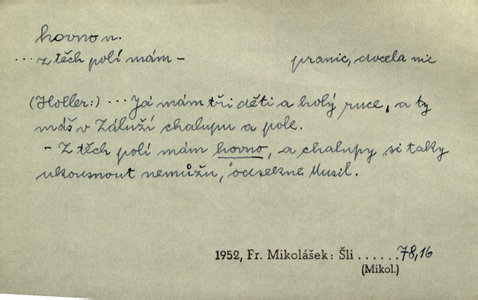 hovno n.
... z těch polí mám – pranic, docela nic
(Holler:) ... Já mám tři děti a holý ruce, a ty
máš v Záluží chalupu a pole.
– Z těch polí mám hovno, a chalupy si taky
ukousnout nemůžu, odsekne Musil.
1952, Fr. Mikolášek: Šli ...... 78,16
(Mikol.)